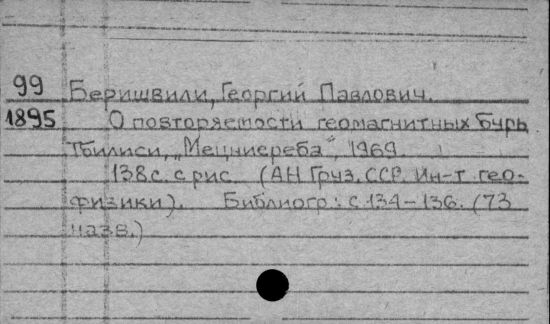 99 Беришвили, Георгий Павлович.
1895 О повторяемости геомагнитных бурь
Тбилиси, „Мецниереба", 1969.
138с. с рис. (АН Груз. ССР. Ин-т гео-
физики). Библиогр.: с.134-136. (73
назв.)